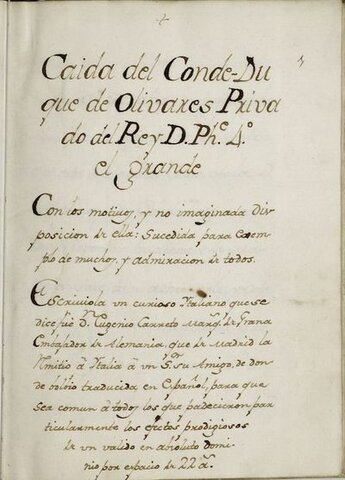 Caida del Conde-Du
que de Olivares Priva
do del Rey D. Phe. 4.º
el grande
Con los motivos, y no imaginada dis
posicion de ella: Sucedida para Exem
plo de muchos, y admiracion de todos.
Escriviola vn curioso Italiano que se
dice fué Dn. Eugenio Carreto Marq. de Grana
Embaxador de Alemania, que de Madrid la
remitió à Italia à vn Sr. su Amigo, de don
de bolvio traducida en Español, para que
sea comun à todos los que padecieron par
ticularmente los efectos prodigiosos
de vn valido en absoluto domi
nio por espacio de 22 a.